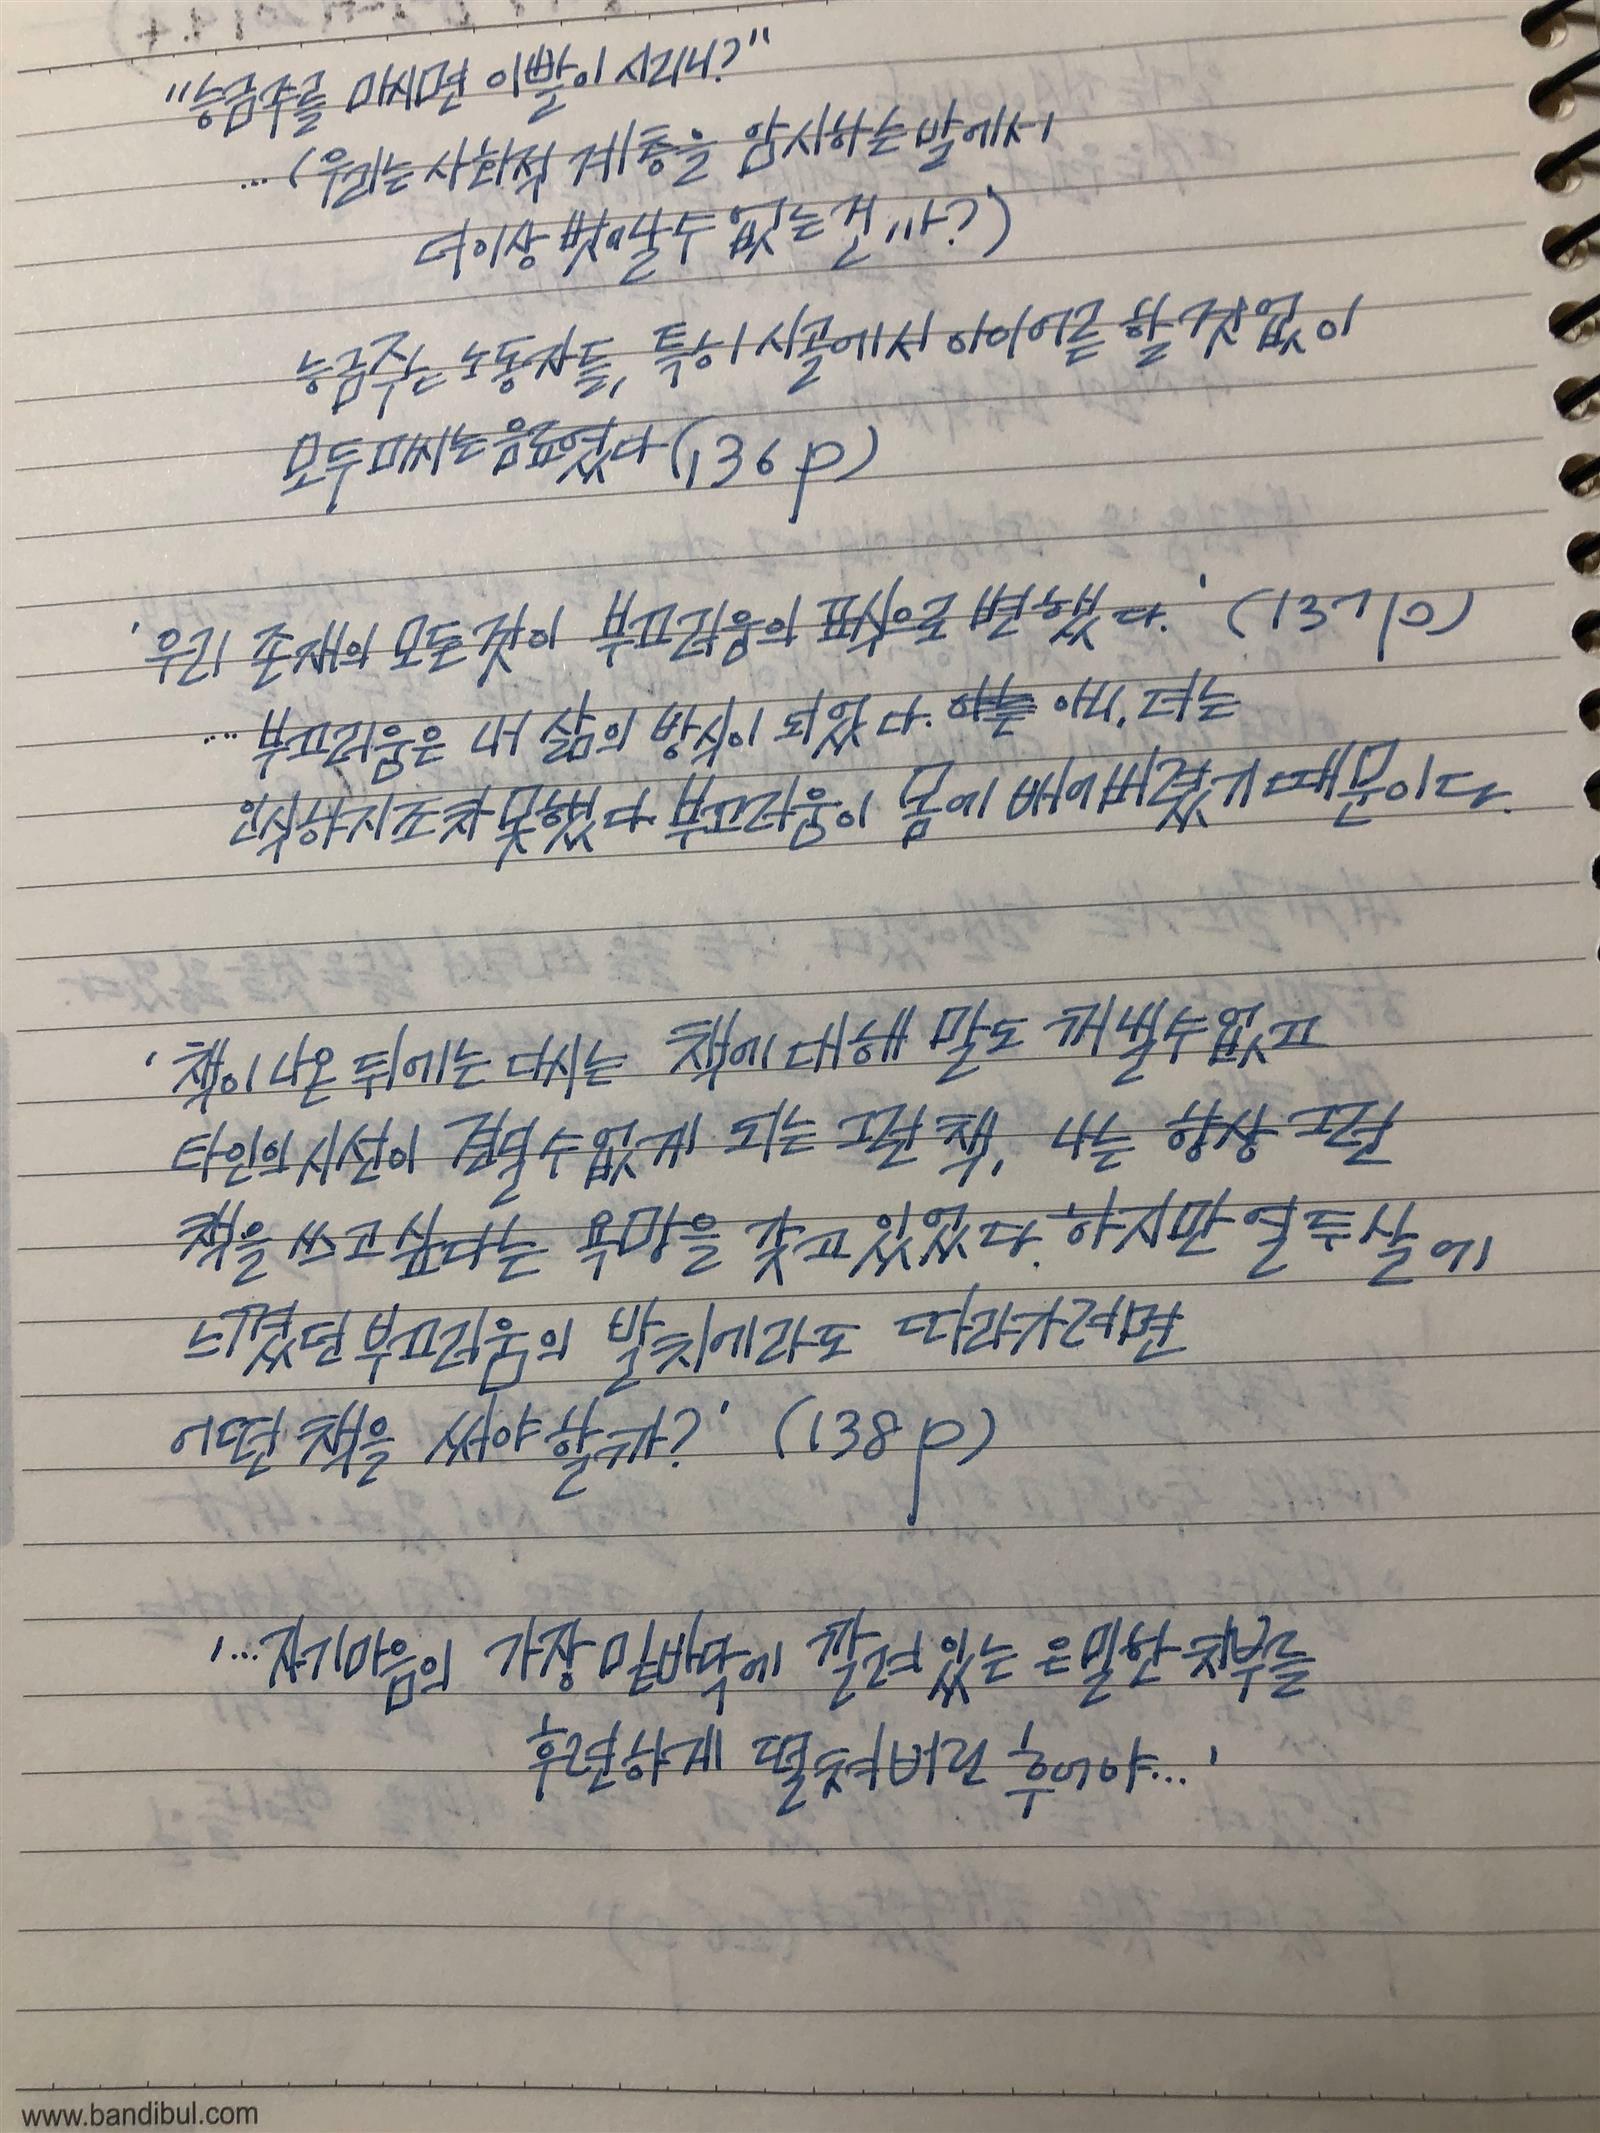 "능금주를 마시면 이빨이 시리니?"
... (우리는 사회적 계층을 암시하는 말에서
더이상 벗어날 수 없는 건가?)
능금주는 노동자들, 특히 시골에서 아이어른 할 것 없이
모두 마시는 음료였다 (136p)
'우리 존재의 모든 것이 부끄러움의 표식으로 변했다.' (137p)
.... 부끄러움은 내 삶의 방식이 되었다. 아니, 더는
인식하지조차 못했다. 부끄러움이 몸에 배어버렸기 때문이다.
'책이 나온 뒤에는 다시는 책에 대해 말도 꺼낼 수 없고
타인의 시선이 견딜 수 없게 되는 그런 책, 나는 항상 그런
책을 쓰고 싶다는 욕망을 갖고 있었다. 하지만 열두 살에
느꼈던 부끄러움의 발치에라도 따라가려면
어떤 책을 써야 할까?' (138p)
'...자기마음의 가장 밑바닥에 깔려있는 은밀한 치부를
후련하게 떨쳐버린 후에야...'
www.bandibul.com